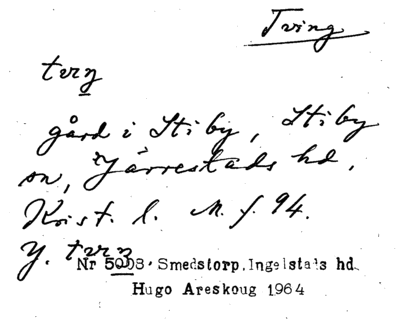 Tving
tvıŋ
gård i Stiby, Stiby
sn, Järrestads hd,
Krist. l. M. f. 94.
Y. tvıŋ
Nr 5008. Smedstorp, Ingelstads hd
Hugo Areskoug 1964